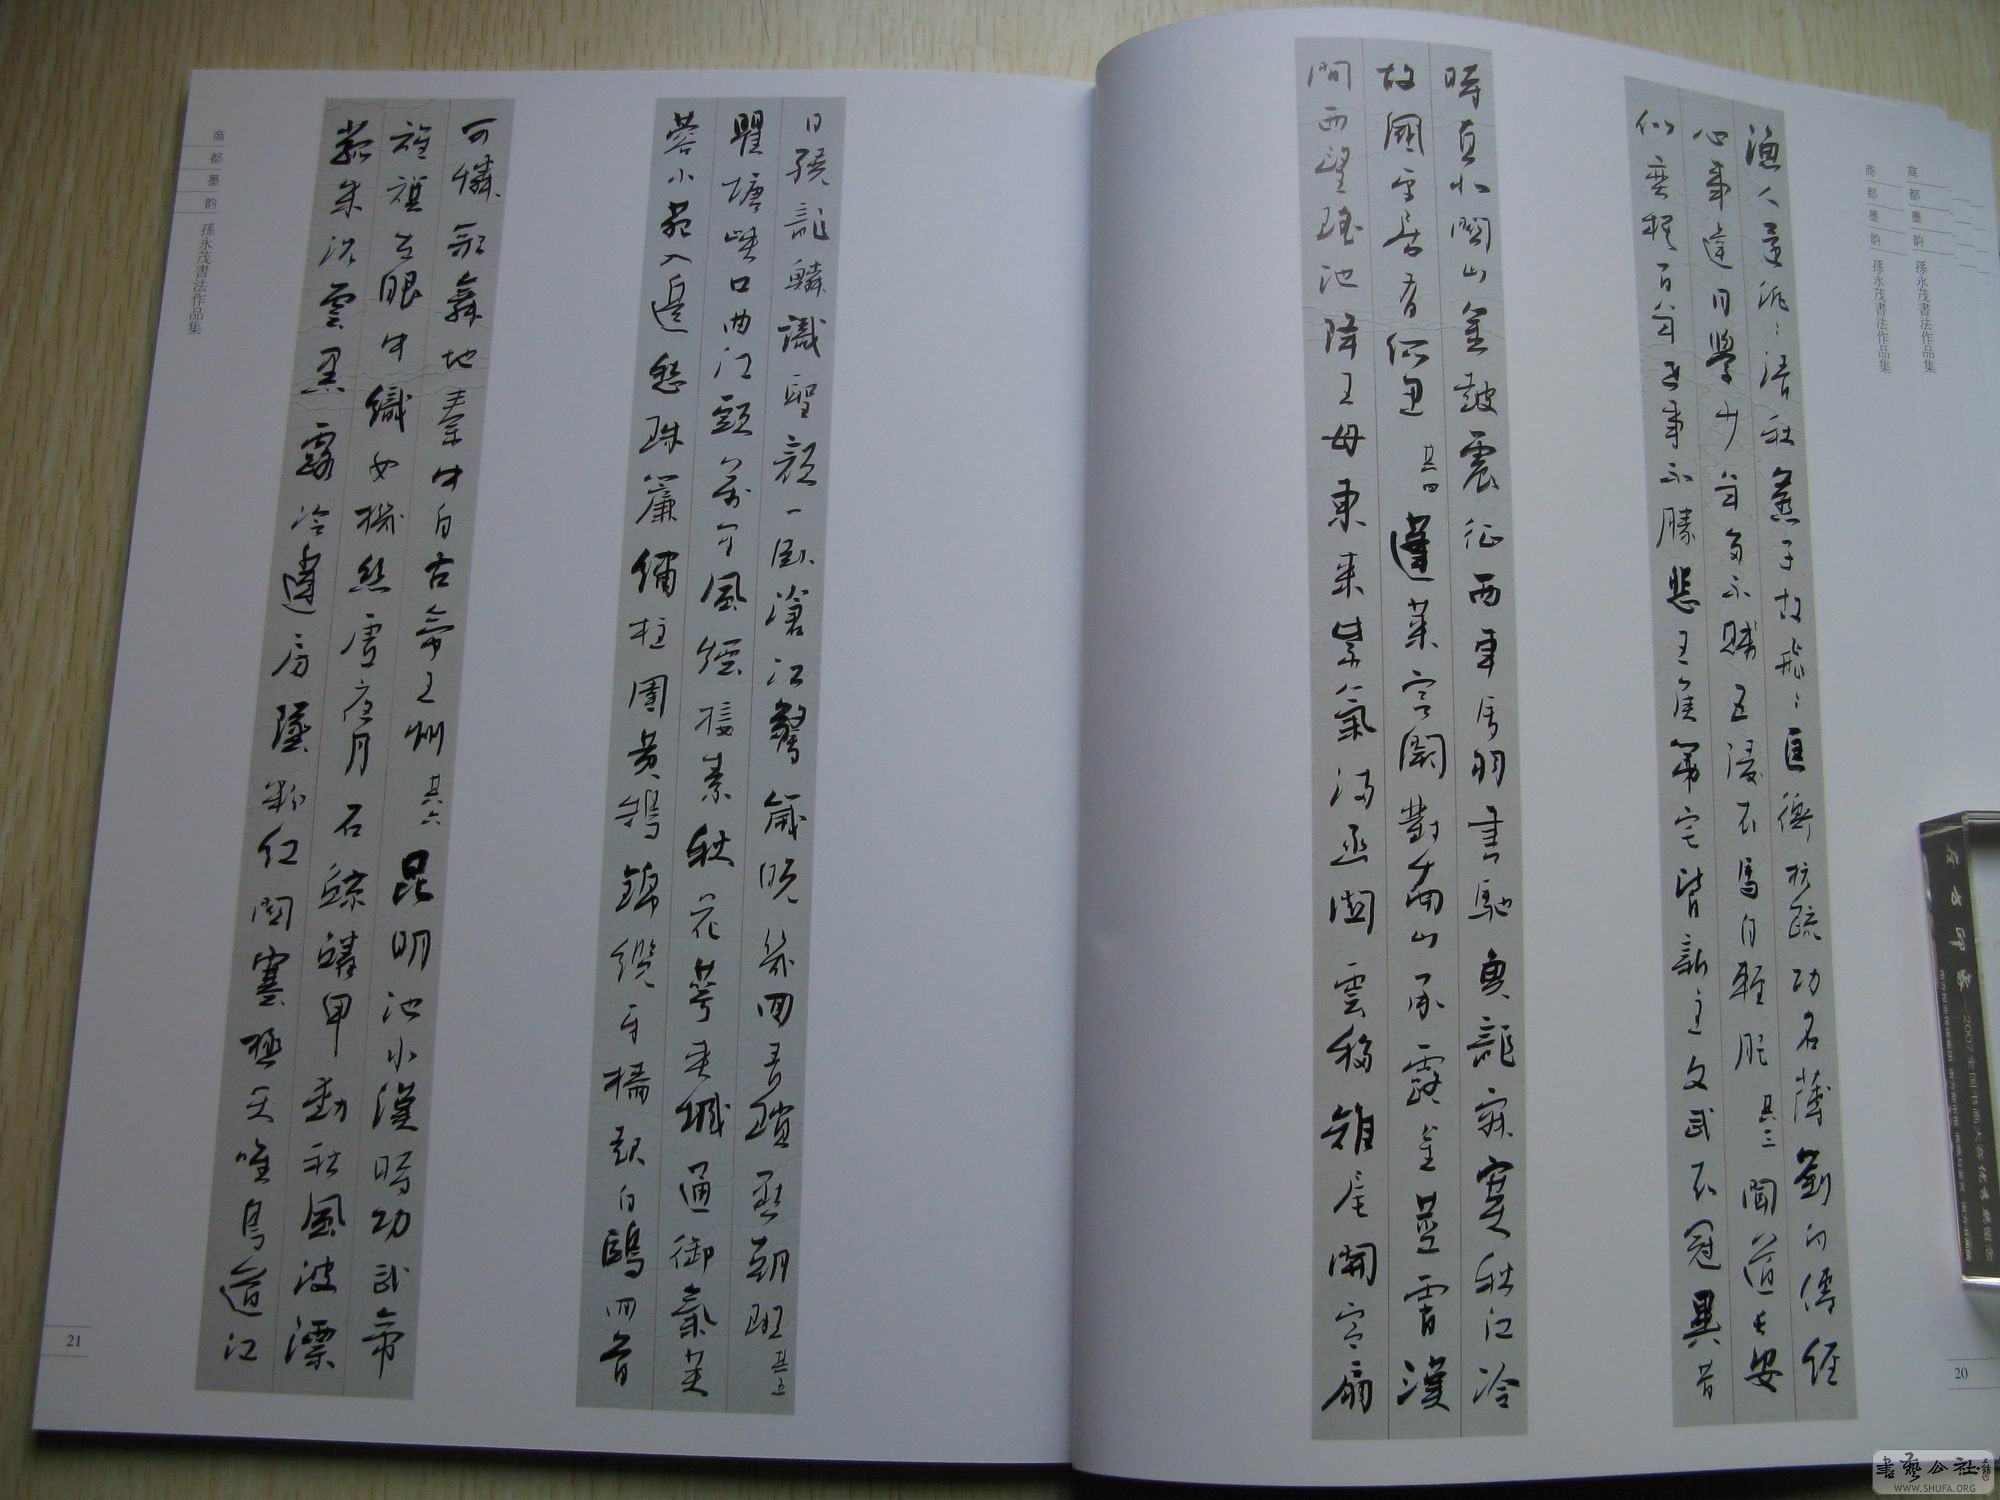 商都墨韵 孫永茂書法作品集
商都墨韵 孫永茂書法作品集
漁人還泛〻清秋燕子故飛〻匡衡抗疏功名薄劉向傳經
心事違同學少年多不賤五陵衣馬自輕肥 其三 聞道長安
似弈棋百年世事不勝悲王侯第宅皆新主文武衣冠異昔
時直北關山金鼓震征西車馬羽書馳魚龍寂寞秋江冷
故國平居有所思 其四 蓬萊宮闕對南山承露金莖霄漢
間西望瑤池降王母東來紫氣滿函關雲移雉尾開宮扇
20
日繞龍鱗識聖顏一臥滄江驚歲晚幾回青瑣點朝班 其五
瞿塘峽口曲江頭萬里風煙接素秋花萼夾城通御氣芙
蓉小苑入邊愁珠簾繡柱圍黃鵠錦纜牙檣起白鷗回首
可憐歌舞地秦中自古帝王州 其六 昆明池水漢時功武帝
旌旗在眼中織女機絲虛夜月石鯨鱗甲動秋風波漂
菰米沉雲黑露冷蓮房墜粉紅關塞極天唯鳥道江
商都墨韵 孫永茂書法作品集
21
書藝公社
WWW.SHUFA.ORG